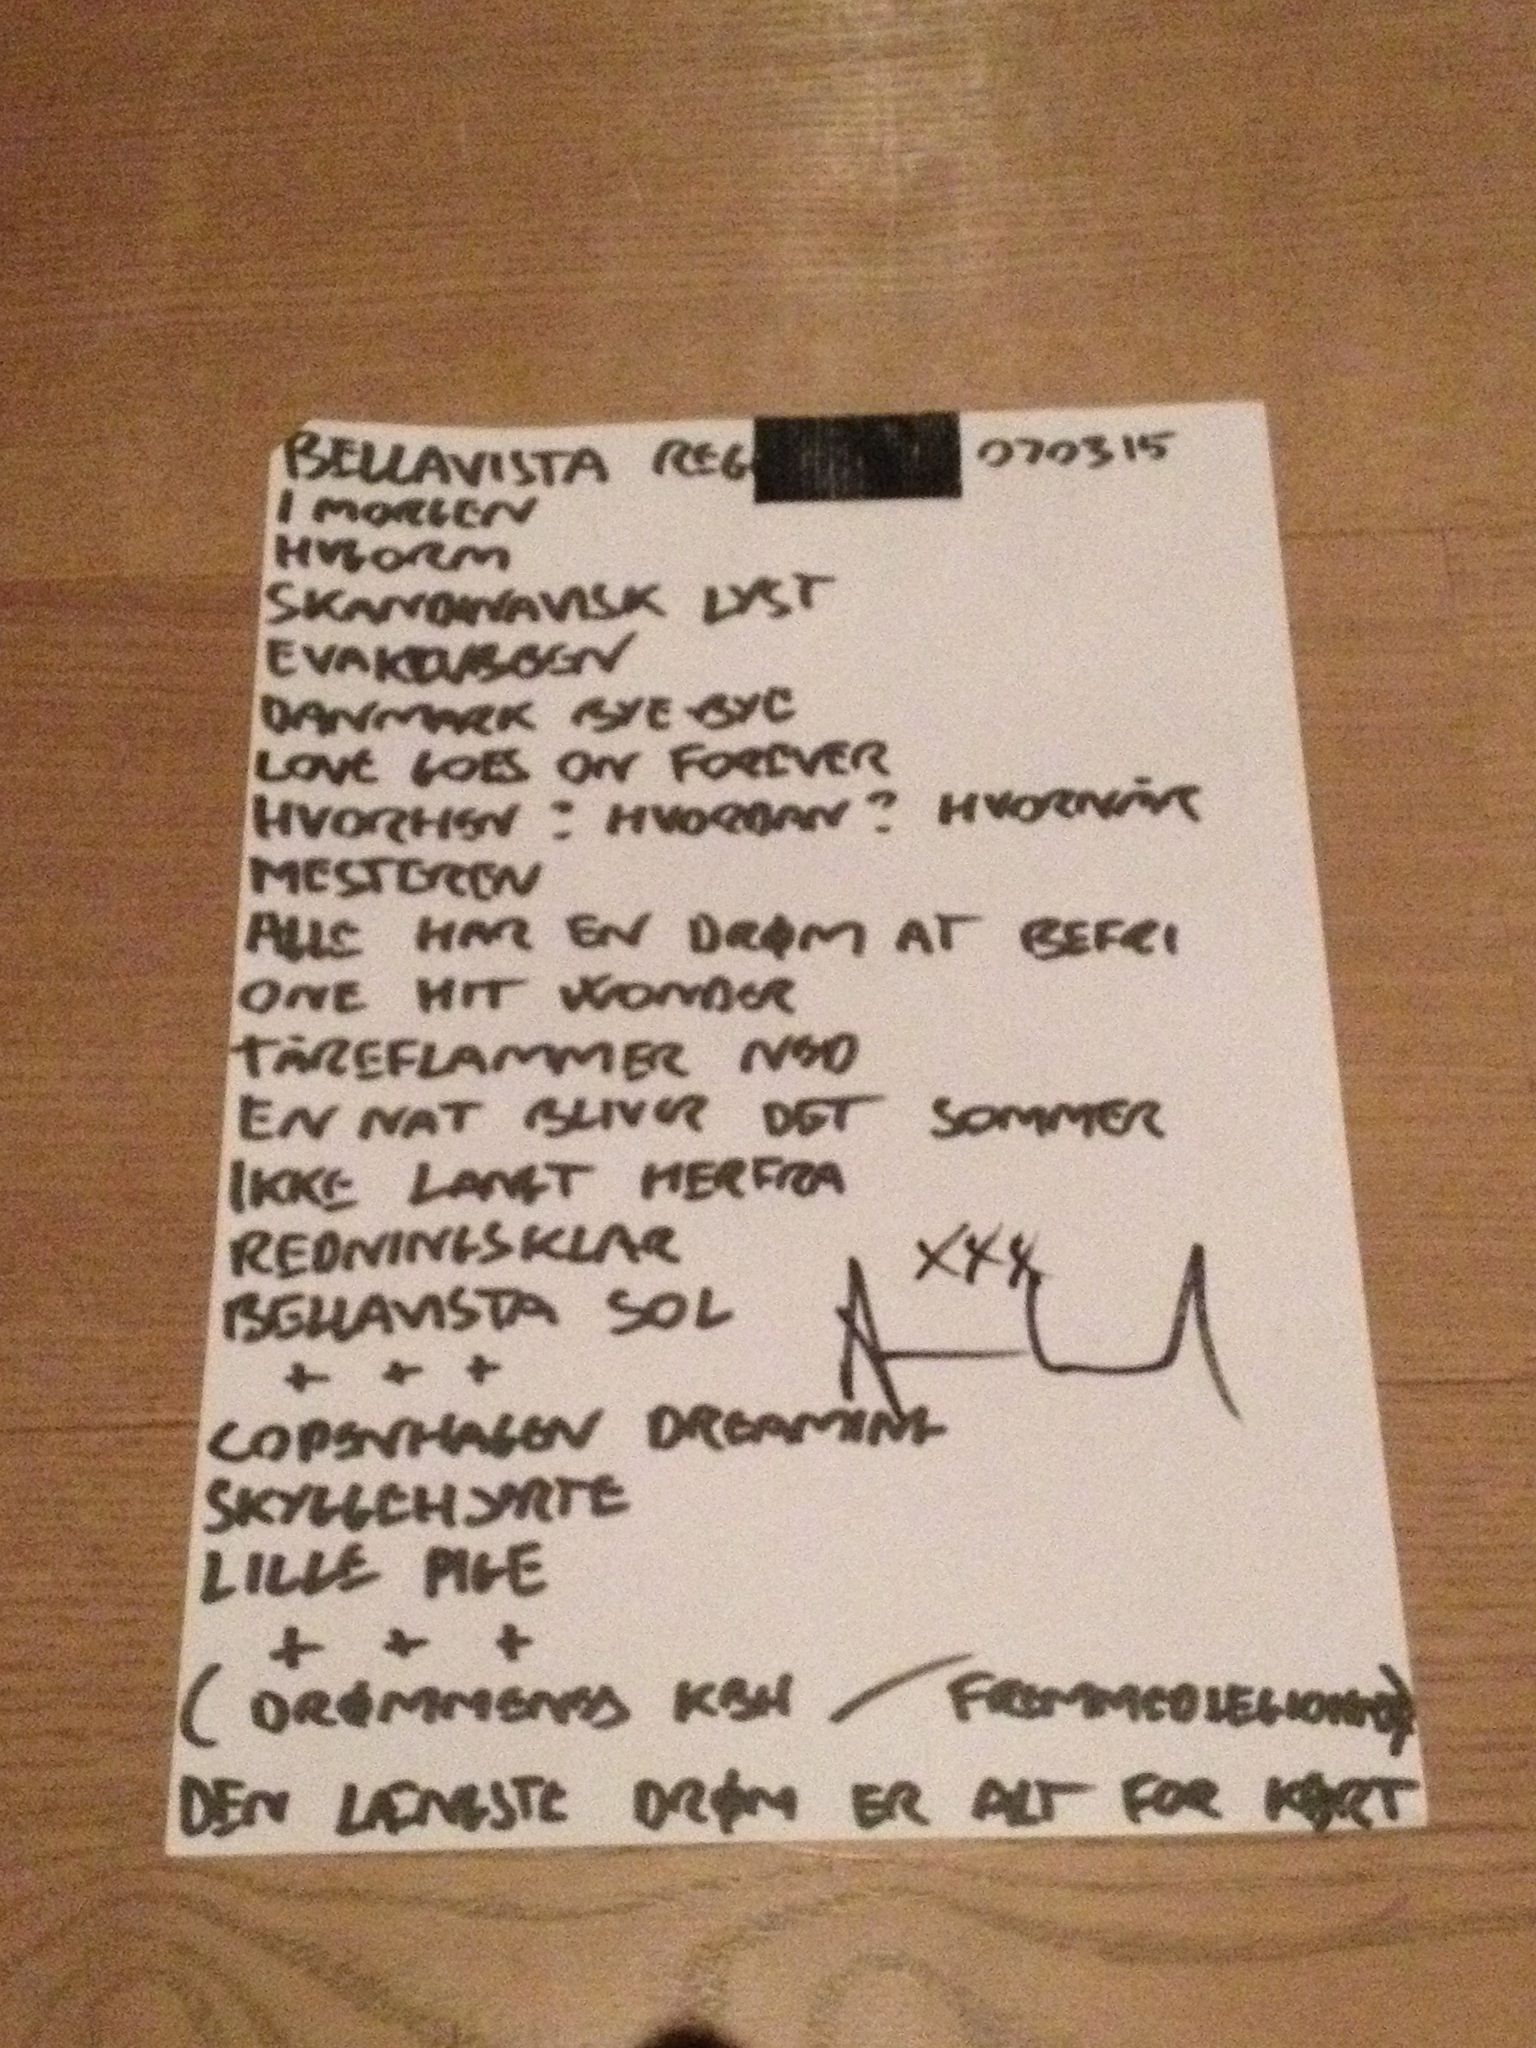 BELLAVISTA REG 070315
I MORGEN
HUGORM
SKANDINAVISK LYST
EVAKLUBBEN
DANMARK BYE-BYE
LOVE GOES ON FOREVER
HVORHEN? HVORDAN? HVORNÅR
MESTEREN
ALLE HAR EN DRØM AT BEFRI
ONE HIT WONDER
TÅREFLAMMER NED
EN NAT BLIVER DET SOMMER
IKKE LANGT HERFRA
REDNINGSKLAR
XXX
BELLAVISTA SOL
+ + +
COPENHAGEN DREAMING
SKYGGEHJERTE
LILLE PIGE
+ + +
( DRØMMENES KBH / )
DEN LÆNGSTE DRØM ER ALT FOR KORT